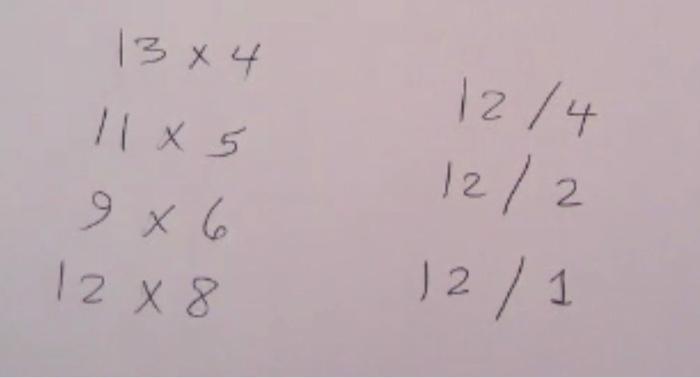 13 x 4
11 x 5
9 x 6
12 x 8
12 / 4
12 / 2
12 / 1